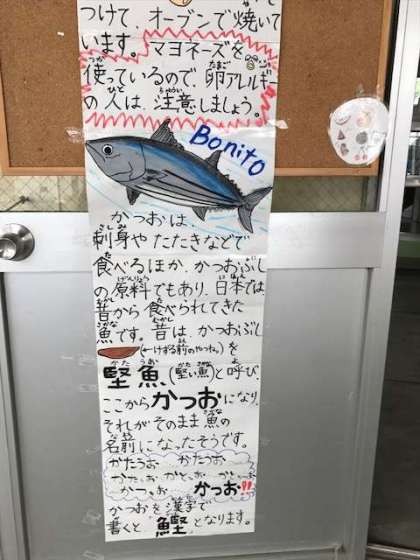 つけて、オーブンで焼いて
います。マヨネーズを
使っているので、卵アレルギー
の人は、注意しましょう。
Bonito
かつおは、
刺身や たたきなどで
食べるほか、かつおぶし
の原料でもあり、日本では
昔から 食べられてきた
魚です。昔は、かつおぶし
(←けずる前のやつね。)を
堅魚(堅い魚)と呼び、
ここからかつおになり、
それがそのまま魚の
名前になったそうです。
かたうお かたうお
かつお!!
かつおを漢字で
書くと「鰹」となります。